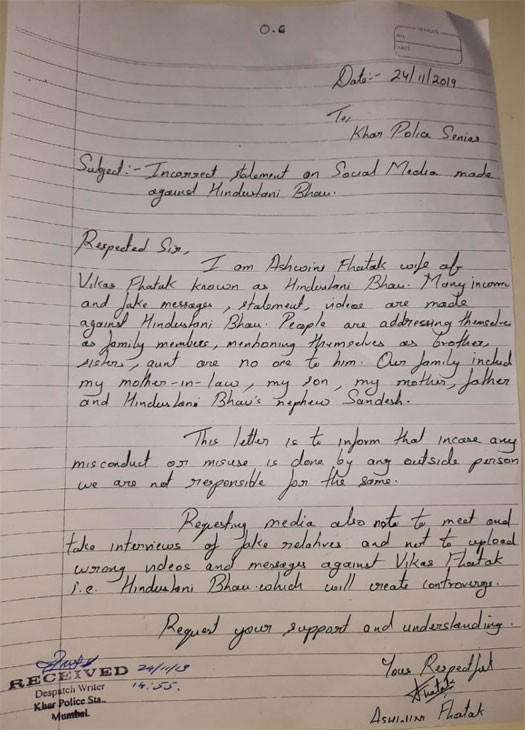 O.C
DATE
Date:- 24/11/2019
To,
Khar Police Senior
Subject:- Incorrect statement on Social Media made
against Hindustani Bhau.
Respected Sir,
I am Ashwini Fhatak wife of
Vikas Fhatak known as Hindustani Bhau. Many incorr
and fake messages, statement, videos are made
against Hindustani Bhau. People are addressing themselve
as family members, mentioning themselves as brother,
sisters, aunt are no one to him. Our family includ
my mother-in-law, my son, my mother, father
and Hindustani Bhau's nephew Sandesh.
This letter is to inform that incase any
misconduct or misuse is done by any outside person
we are not responsible for the same.
Requesting media also not to meet and
take interviews of fake relatives and not to upload
wrong videos and messages against Vikas Fhatak
i.e. Hindustani Bhau which will create controversy.
Request your support and understanding.
RECEIVED 24/11/19
Despatch Writer 14:55.
Khar Police Sta.,
Mumbai.
Yours Respectful
Fhatak
ASHWINI Fhatak